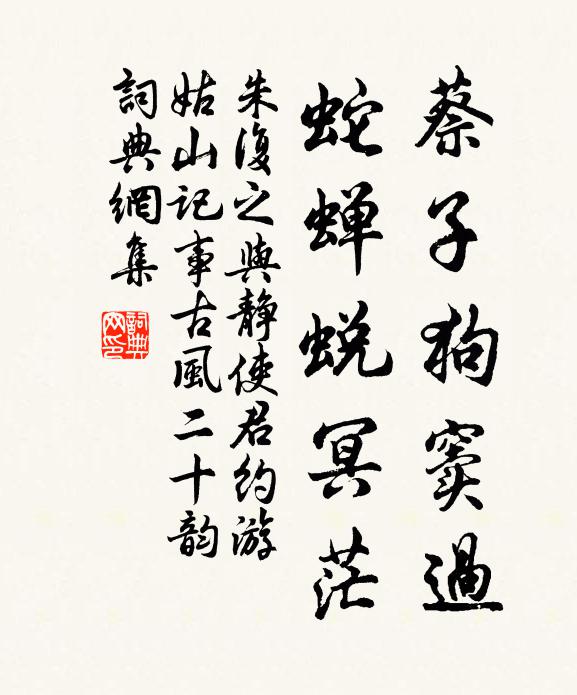 蔡子狗竇過
蛇蝉蜕冥茫
朱復之與静使君約游
姑山记事古風二十韵
詞典網集
詞典网印